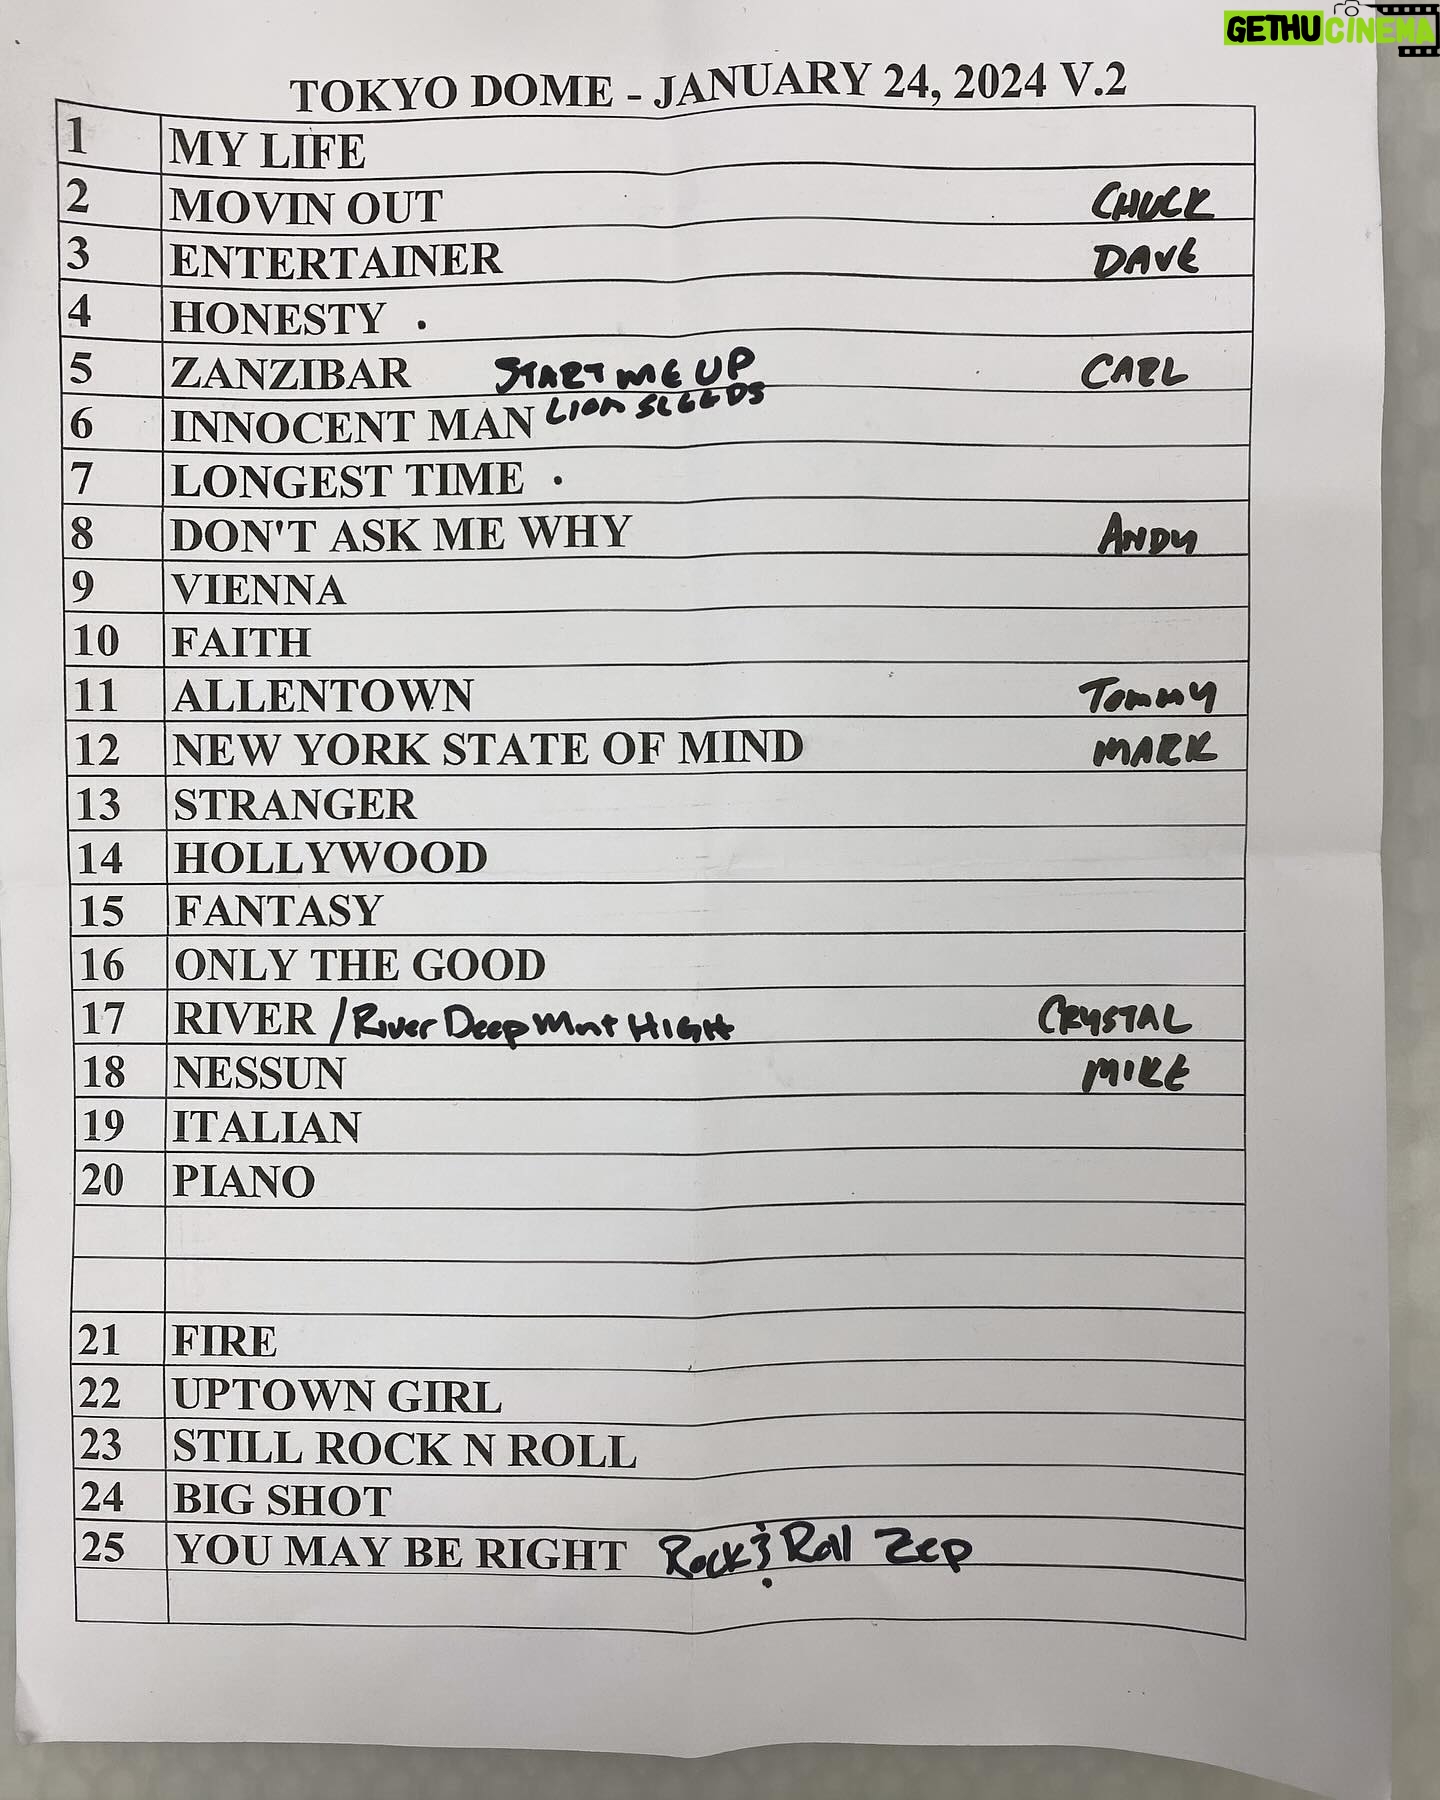 GETHUCINEMA
TOKYO DOME - JANUARY 24, 2024 V.2
1 MY LIFE
2 MOVIN OUT CHUCK
3 ENTERTAINER DAVE
4 HONESTY .
5 ZANZIBAR START ME UP CARL
6 INNOCENT MAN LION SLEEDS
7 LONGEST TIME .
8 DON'T ASK ME WHY ANDY
9 VIENNA
10 FAITH
11 ALLENTOWN TOMMY
12 NEW YORK STATE OF MIND MARK
13 STRANGER
14 HOLLYWOOD
15 FANTASY
16 ONLY THE GOOD
17 RIVER / River Deep Mnt HIGH CRYSTAL
18 NESSUN MIKE
19 ITALIAN
20 PIANO
21 FIRE
22 UPTOWN GIRL
23 STILL ROCK N ROLL
24 BIG SHOT
25 YOU MAY BE RIGHT Rock & Roll Zep